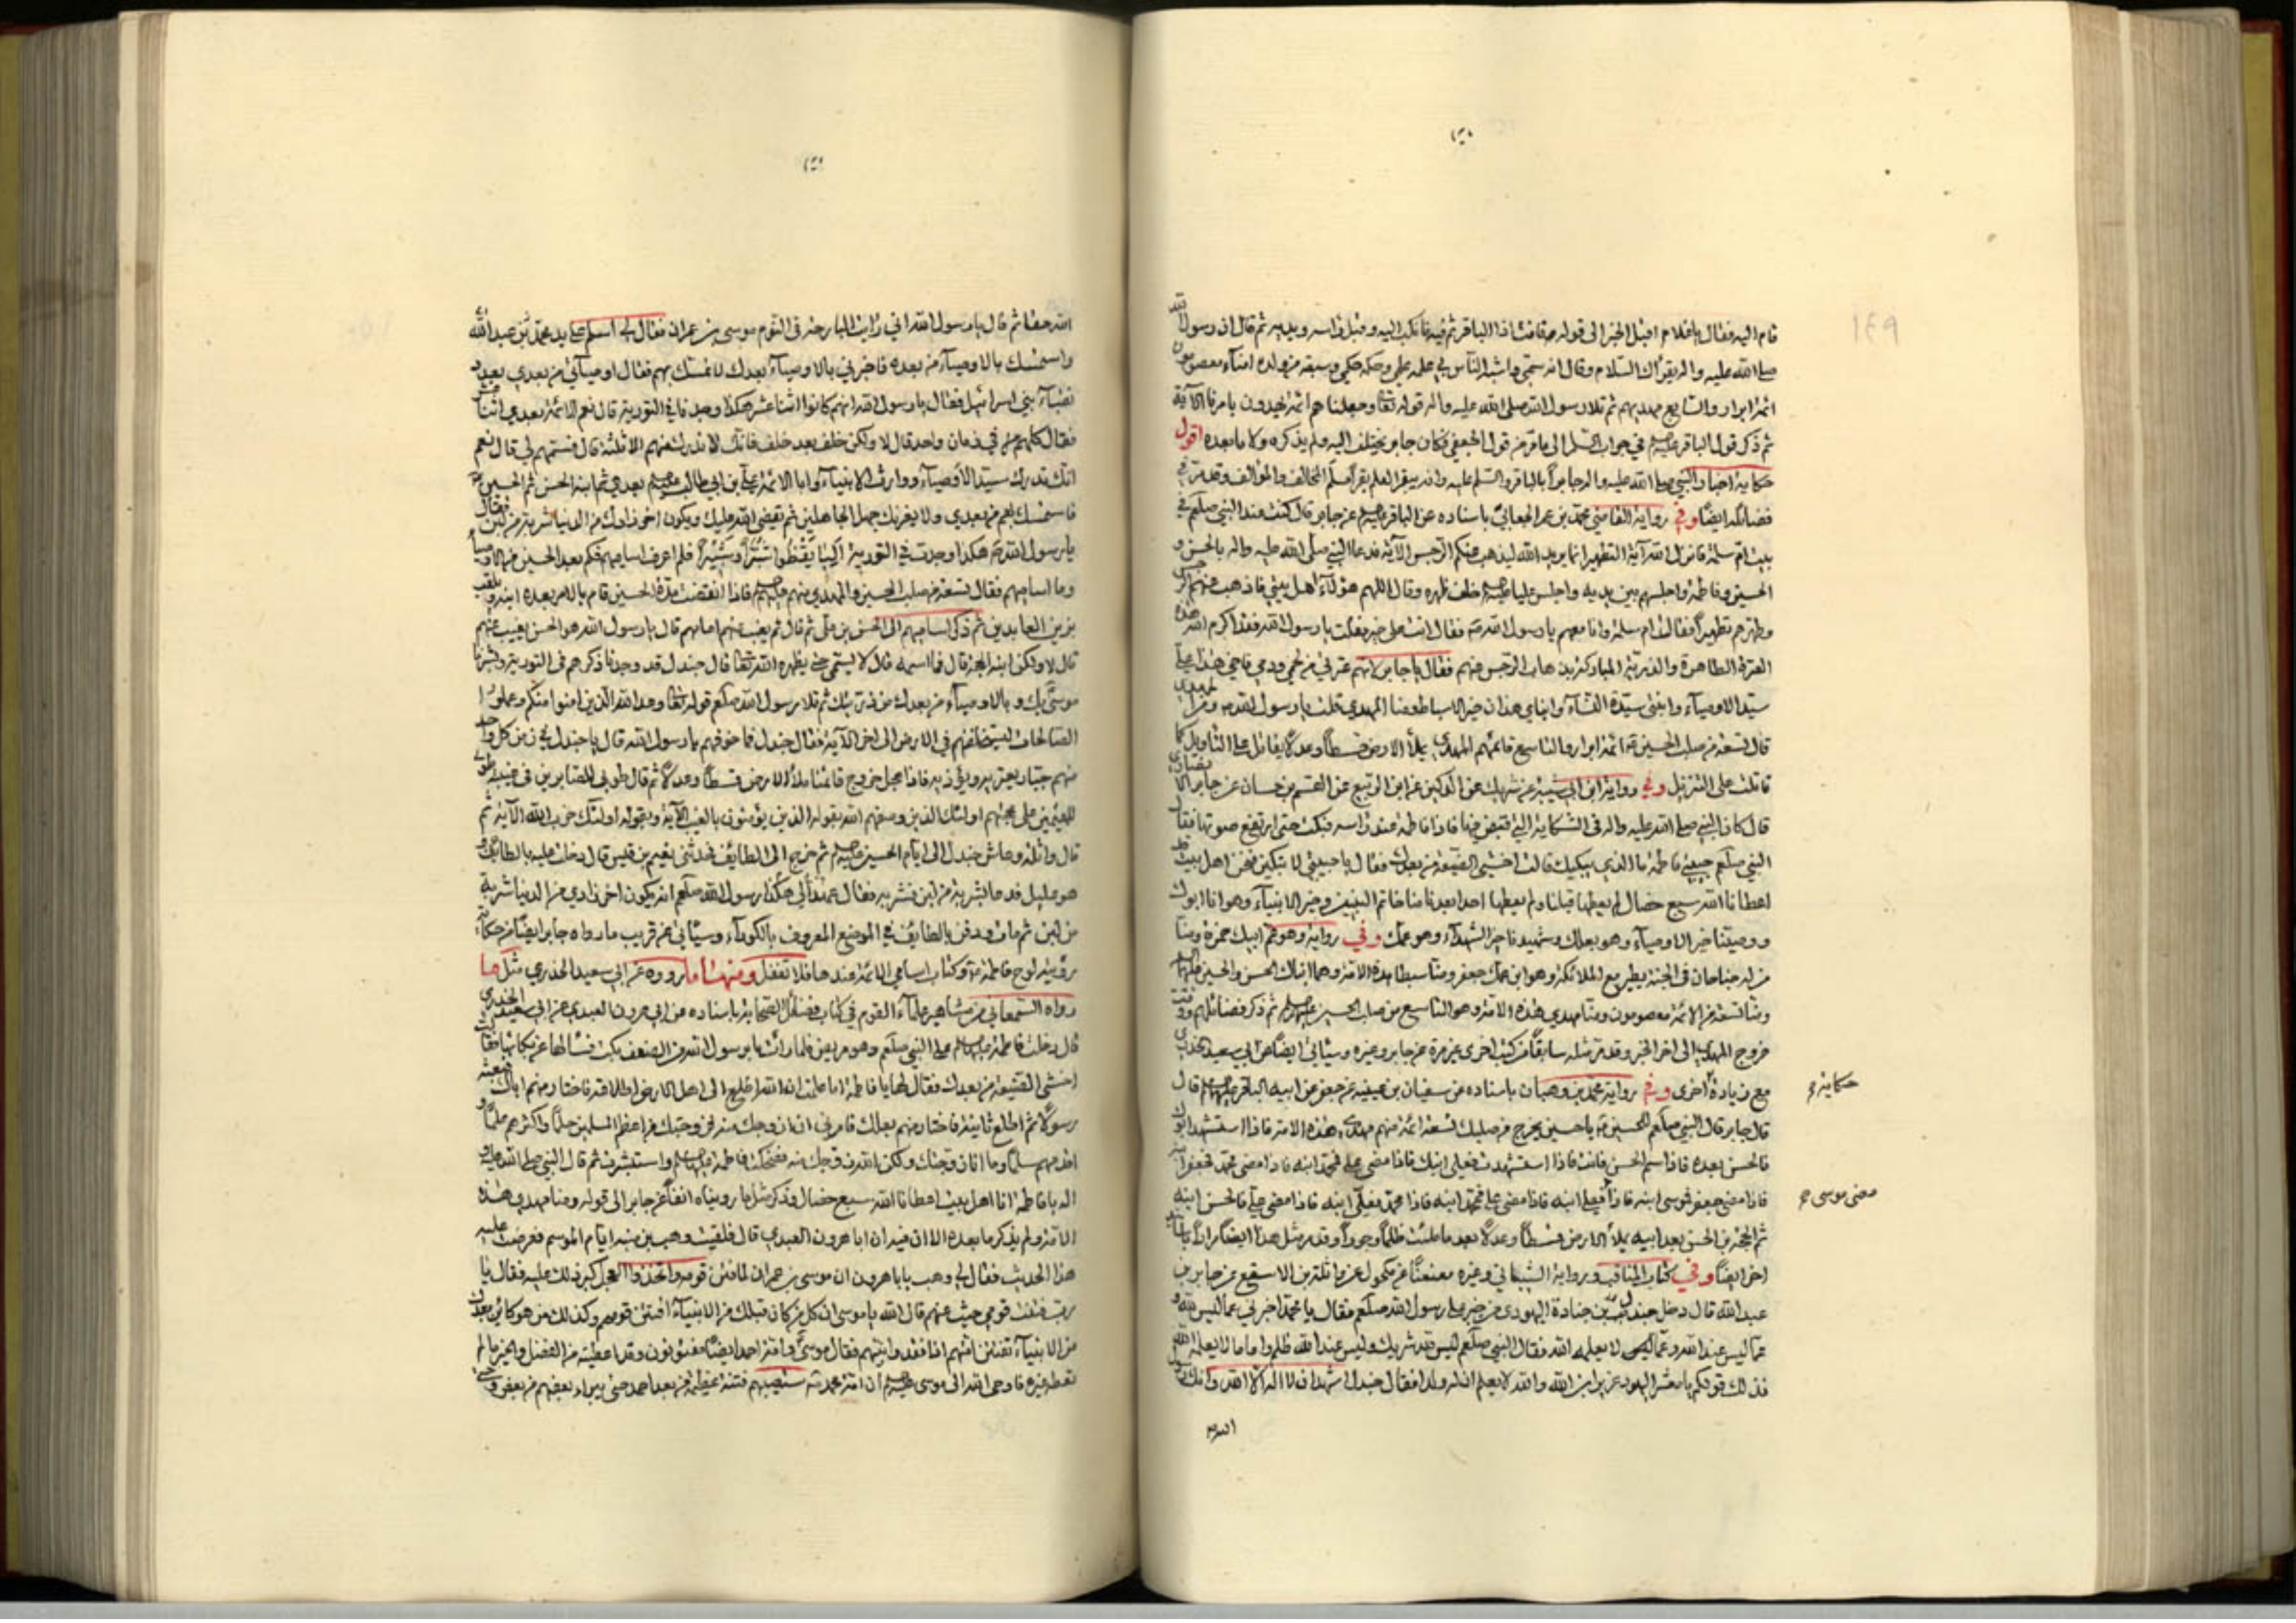 قام اليه فقال يا غلام اقبل الخبر الى قوله فقامت اذا الباقر ثم فيه فانكب اليه وقبل راسه ويديه ثم قال ان رسول
صلى الله عليه واله يقرأك السلام وقال انه سمي واشبه الناس بي علمه علمي وحكمه حكمي وسبعة من ولده امناء معصومون
ائمة ابرار والسابع مهديهم ثم تلا رسول الله صلى الله عليه واله قوله تعا وجعلناهم ائمة يهدون بامرنا الآية
ثم ذكر قول الباقر في جواب الى مامر من قول الجعفي فكان جابر يختلف اليه ولم يذكره ولا ما بعده اقول
حكاية اخبار النبي صلى الله عليه واله جابرا بالباقر والسلم عليه وانه يبقر العلم بقرا مسلم المخالف والموالف وقد مر في
فضائله ايضا وفي رواية القاضي محمد بن عمر الجعابي باسناده عن الباقر عن جابر قال كنت عند النبي صلعم في
بيت ام سلمة فانزل الله آية التطهير انما يريد الله ليذهب عنكم الرجس الآية فدعا النبي صلى الله عليه واله بالحسن و
الحسين وفاطمة واجلسهم بين يديه واجلس عليا خلف ظهره وقال اللهم هؤلاء اهل بيتي فاذهب عنهم الرجس
وطهرهم تطهيرا فقالت ام سلمة وانا معهم يا رسول الله فقال انت على خير فقلت يا رسول الله فقد اكرم الله هذه
العترة الطاهرة والذرية المباركة بذهاب الرجس عنهم فقال يا جابر لانهم عترتي من لحمي ودمي فاخي هذا علي
سيد الاوصياء وابنتي سيدة النساء وابناي هذان خير الاسباط ومنا المهدي قلت يا رسول الله ومن المهدي
قال تسعة من صلب الحسين ائمة ابرار والتاسع قائمهم المهدي يملأ الارض قسطا وعدلا يقاتل على التاويل كما
قاتلت على التنزيل وفي رواية ابن ابي شيبة عن شريك عن الركين عن ابن الربيع عن القسم بن حسان عن جابر الانصاري
قال كان النبي صلى الله عليه واله في الشكاية التي قبض فيها فاذا فاطمة عند راسه فبكت حتى ارتفع صوتها فقال
النبي صلعم حبيبتي فاطمة ما الذي يبكيك قالت اخشى الضيعة من بعدك فقال يا حبيبتي لا تبكين فنحن اهل بيت قد
اعطانا الله سبع خصال لم يعطها قبلنا ولم يعطها احدا بعدنا منا خاتم النبيين وخير الانبياء وهو انا ابوك
ووصينا خير الاوصياء وهو بعلك وشهيدنا خير الشهداء وهو عمك وفي رواية وهو عم ابيك حمزة ومنا
من له جناحان في الجنة يطير مع الملائكة وهو ابن عمك جعفر ومنا سبطا هذه الامة وهما ابناك الحسن والحسين
ومنا تسعة من الائمة معصومون ومنا مهدي هذه الامة وهو التاسع من صلب الحسين ثم ذكر فضائلهم ووقت
خروج المهدي الى اخر الخبر وقد مر مثله سابقا من كتب اخرى عن جابر وغيره وسيأتي ايضا عن ابي سعيد الخدري
مع زيادة اخرى وفي رواية محمد بن وهبان باسناده عن سفيان بن عيينة عن جعفر عن ابيه الباقر قال
قال جابر قال النبي صلعم للحسين يا حسين يخرج من صلبك تسعة ائمة منهم مهدي هذه الامة فاذا استشهد ابوك
فالحسن بعده فاذا سم الحسن فانت فاذا استشهدت فعلي ابنك فاذا مضى علي فمحمد ابنه فاذا مضى محمد فجعفر ابنه
فاذا مضى جعفر فموسى ابنه فاذا فعلي ابنه فاذا مضى علي فمحمد ابنه فاذا محمد فعلي ابنه فاذا مضى علي فالحسن ابنه
ثم الحجة بن الحسن بعد ابيه يملأ الارض قسطا وعدلا بعد ما ملئت ظلما وجورا وقد مر مثل هذا ايضا مرارا
اخر ايضا وفي كتاب المناقب ورواية الشيباني وغيره معنعنا عن مكحول عن واثلة بن الاسقع عن جابر بن
عبد الله قال دخل جندل بن جنادة اليهودي من خيبر على رسول الله صلعم فقال يا محمد اخبرني عما ليس لله و
عما ليس عند الله وعما لا يعلمه الله فقال النبي صلعم ليس لله شريك وليس عند الله ظلم واما ما لا يعلمه الله
فذلك قولكم يا معشر اليهود عزير ابن الله والله لا يعلم ان له ولدا فقال جندل اشهد ان لا اله الا الله وانك رسول
الله حقا ثم قال يا رسول الله اني رايت البارحة في النوم موسى بن عمران فقال لي اسلم على يد محمد بن عبد الله
واستمسك بالاوصياء من بعده فاخبرني بالاوصياء بعدك لاتمسك بهم فقال اوصيائي من بعدي بعدد
نقباء بني اسرائيل فقال يا رسول الله انهم كانوا اثنا عشر هكذا وجدنا في التورية قال نعم الائمة بعدي اثنا عشر
فقال كلهم في زمان واحد قال لا ولكن خلف بعد خلف فانك لا تدرك منهم الا ثلثة قال فسمهم لي قال نعم
انك تدرك سيد الاوصياء ووارث الانبياء وابا الائمة علي بن ابي طالب بعدي ثم ابنه الحسن ثم الحسين
فاستمسك بهم من بعدي ولا يغرنك جهل الجاهلين ثم يقضي الله عليك ويكون اخر زادك من الدنيا شربة من لبن فقال
يا رسول الله هكذا وجدت في التورية اليا يقظوا شبرا وشبيرا فلم اعرف اساميهم فكم بعد الحسين من الاوصياء
وما اساميهم فقال تسعة من صلب الحسين والمهدي منهم فاذا انقضت مدة الحسين قام بالامر بعده ابنه ويلقب
بزين العابدين ثم ذكر اساميهم الى الحسن بن علي ثم قال ثم يغيب عنهم امامهم قال يا رسول الله هو الحسن يغيب عنهم
قال لا ولكن ابنه الحجة قال فما اسمه قال لا يسمى حتى يظهره الله تعا قال جندل قد وجدنا ذكرهم في التورية وبشرنا
موسى بك وبالاوصياء من بعدك من ذريتك ثم تلا رسول الله صلعم قوله تعا وعد الله الذين امنوا منكم وعملوا
الصالحات ليستخلفنهم في الارض الى اخر الآية فقال جندل فما خوفهم يا رسول الله قال يا جندل في زمن كل واحد
منهم جبار يعتريه ويؤذيه فاذا عجل خروج قائمنا ملأ الارض قسطا وعدلا ثم قال طوبى للصابرين في غيبته طوبى
للمقيمين على محبتهم اولئك الذين وصفهم الله بقوله الذين يؤمنون بالغيب الآية وبقوله اولئك حزب الله الآية ثم
قال واثلة وعاش جندل الى ايام الحسين ثم خرج الى الطايف فحدثني نعيم بن قيس قال دخلت عليه بالطايف و
هو عليل فدعا بشربة من لبن فشربه فقال عهد الي هكذا رسول الله صلعم انه يكون اخر زادي من الدنيا شربة
من لبن ثم مات ودفن بالطايف في الموضع المعروف بالكوراء وسيأتي عن قريب ما رواه جابر ايضا من حكاية
رؤيته لوح فاطمة وكتاب اسامي الائمة عندها فلا تغفل ومنها ما رووه عن ابي سعيد الخدري مثل ما
رواه السمعاني من مشاهير علماء القوم في كتاب فضائل الصحابة باسناده عن ابي هرون العبدي عن ابي سعيد الخدري
قال دخلت فاطمة على النبي صلعم وهو مريض فلما رات ما برسول الله من الضعف بكت فسألها عن بكائها فقالت
اخشى الضيعة من بعدك فقال لها يا فاطمة اما علمت ان الله اطلع الى اهل الارض اطلاقة فاختار منهم اباك فبعثه
رسولا ثم اطلع ثانية فاختار منهم بعلك فامرني ان ازوجك منه فزوجتك من اعظم المسلمين حلما واكثرهم علما و
اقدمهم سلما وما انا زوجتك ولكن الله زوجك منه فضحكت فاطمة واستبشرت ثم قال النبي صلى الله عليه و
اله يا فاطمة انا اهل بيت اعطانا الله سبع خصال وذكر مثل ما رويناه انفا عن جابر الى قوله ومنا مهدي هذه
الامة ولم يذكر ما بعده الا ان فيه ان ابا هرون العبدي قال فلقيت وهب بن منبه ايام الموسم فعرضت عليه
هذا الحديث فقال لي وهب يا با هرون ان موسى بن عمران لما فتن قومه واتخذوا العجل كبر ذلك عليه فقال يا
رب فتنت قومي حيث غبت عنهم قال الله يا موسى ان كل من كان قبلك من الانبياء افتتن قومه وكذلك من هو كائن بعدك
من الانبياء تفتتن امتهم اذا فقدوا نبيهم فقال موسى وامة احمد ايضا مفتونون وقد اعطيته من الفضل والخير ما لم
تعطه غيره فاوحى الله الى موسى ان امة احمد ستصيبهم فتنة عظيمة من بعد احمد حتى يبراء بعضهم من بعض و
حكاية
مضى موسى
١٤٩